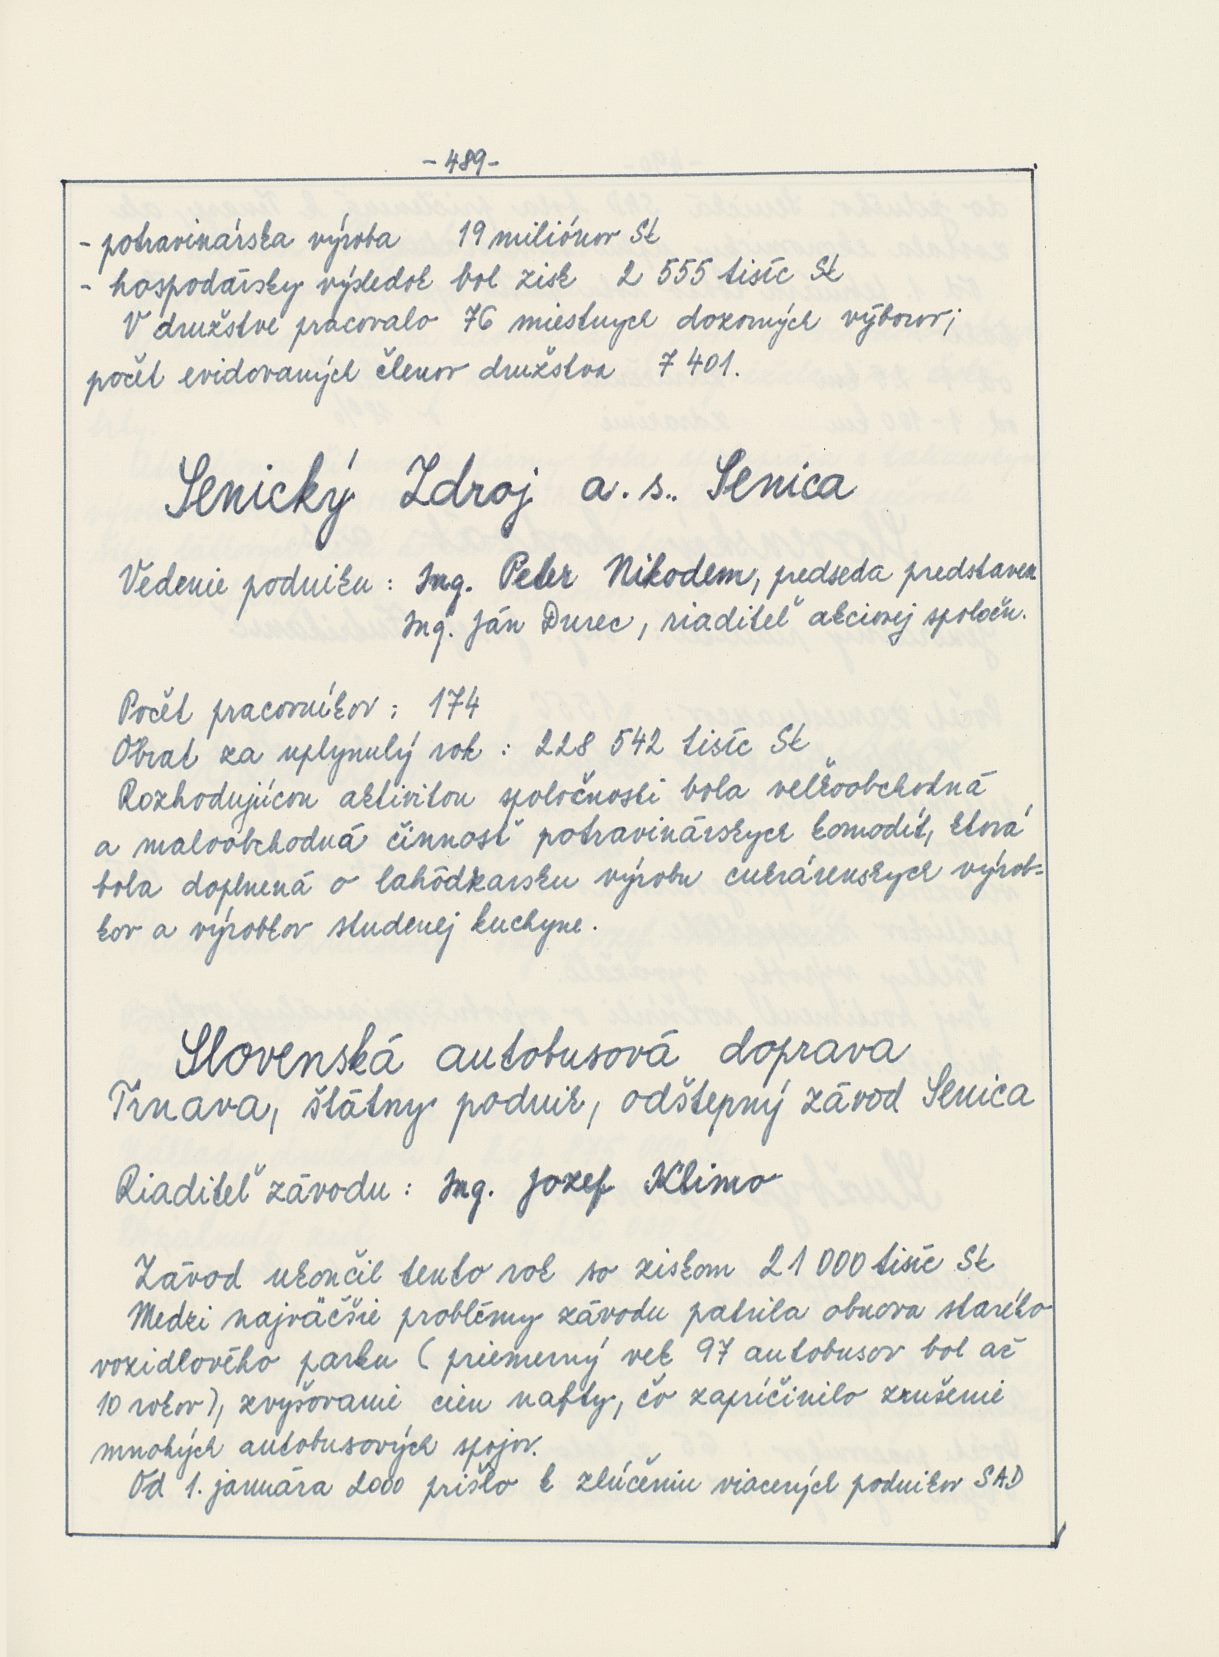 - 489 -
- potravinárska výroba 19 miliónov Sk
- hospodársky výsledok bol zisk 2 555 tisíc Sk
V družstve pracovalo 76 miestnych dozorných výborov;
počet evidovaných členov družstva 7 401.
Senický Zdroj a. s.. Senica
Vedenie podniku : Ing. Peter Nikodem, predseda predstaven
Ing. Ján Durec, riaditeľ akciovej spoločn.
Počet pracovníkov : 174
Obrat za uplynulý rok : 228 542 tisíc Sk
Rozhodujúcou aktivitou spoločnosti bola veľkoobchodná
a maloobchodná činnosť potravinárskych komodít, ktorá
bola doplnená o lahôdkarsku výrobu cukrárenských výrob-
kov a výrobkov studenej kuchyne.
Slovenská autobusová doprava
Trnava, štátny podnik, odštepný závod Senica
Riaditeľ závodu : Ing. Jozef Klimo
Závod ukončil tento rok so ziskom 21 000 tisíc Sk
Medzi najväčšie problémy závodu patrila obnova starého
vozidlového parku ( priemerný vek 97 autobusov bol až
10 rokov ), zvyšovanie cien nafty, čo zapríčinilo zrušenie
mnohých autobusových spojov.
Od 1. januára 2000 prišlo k zlúčeniu viacerých podnikov SAD